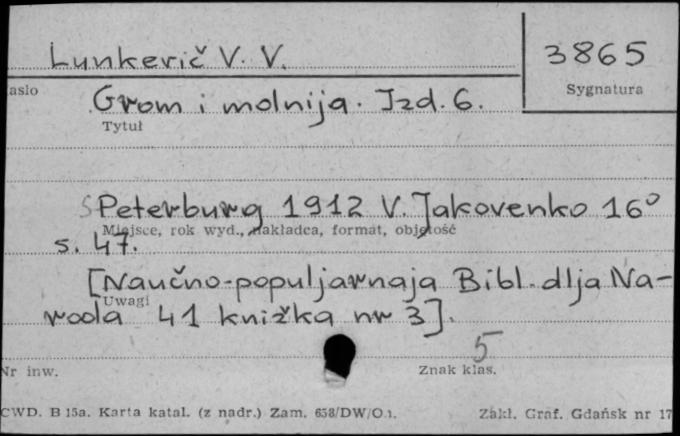 Lunkerič V. V.
3865
asło
Sygnatura
Grom i molnija. Izd. 6.
Tytuł
SPeterburg 1912 V. Jakovenko 16°
Miejsce, rok wyd., nakładca, format, objętość
s. 47.
[Naučno-populjarnaja Bibl. dlja Na-
Uwagi
roda 41 knižka nr 3].
5
Nr inw.
Znak klas.
CWD. B 15a. Karta katal. (z nadr.) Zam. 658/DW/O.1.
Zakł. Graf. Gdańsk nr 17